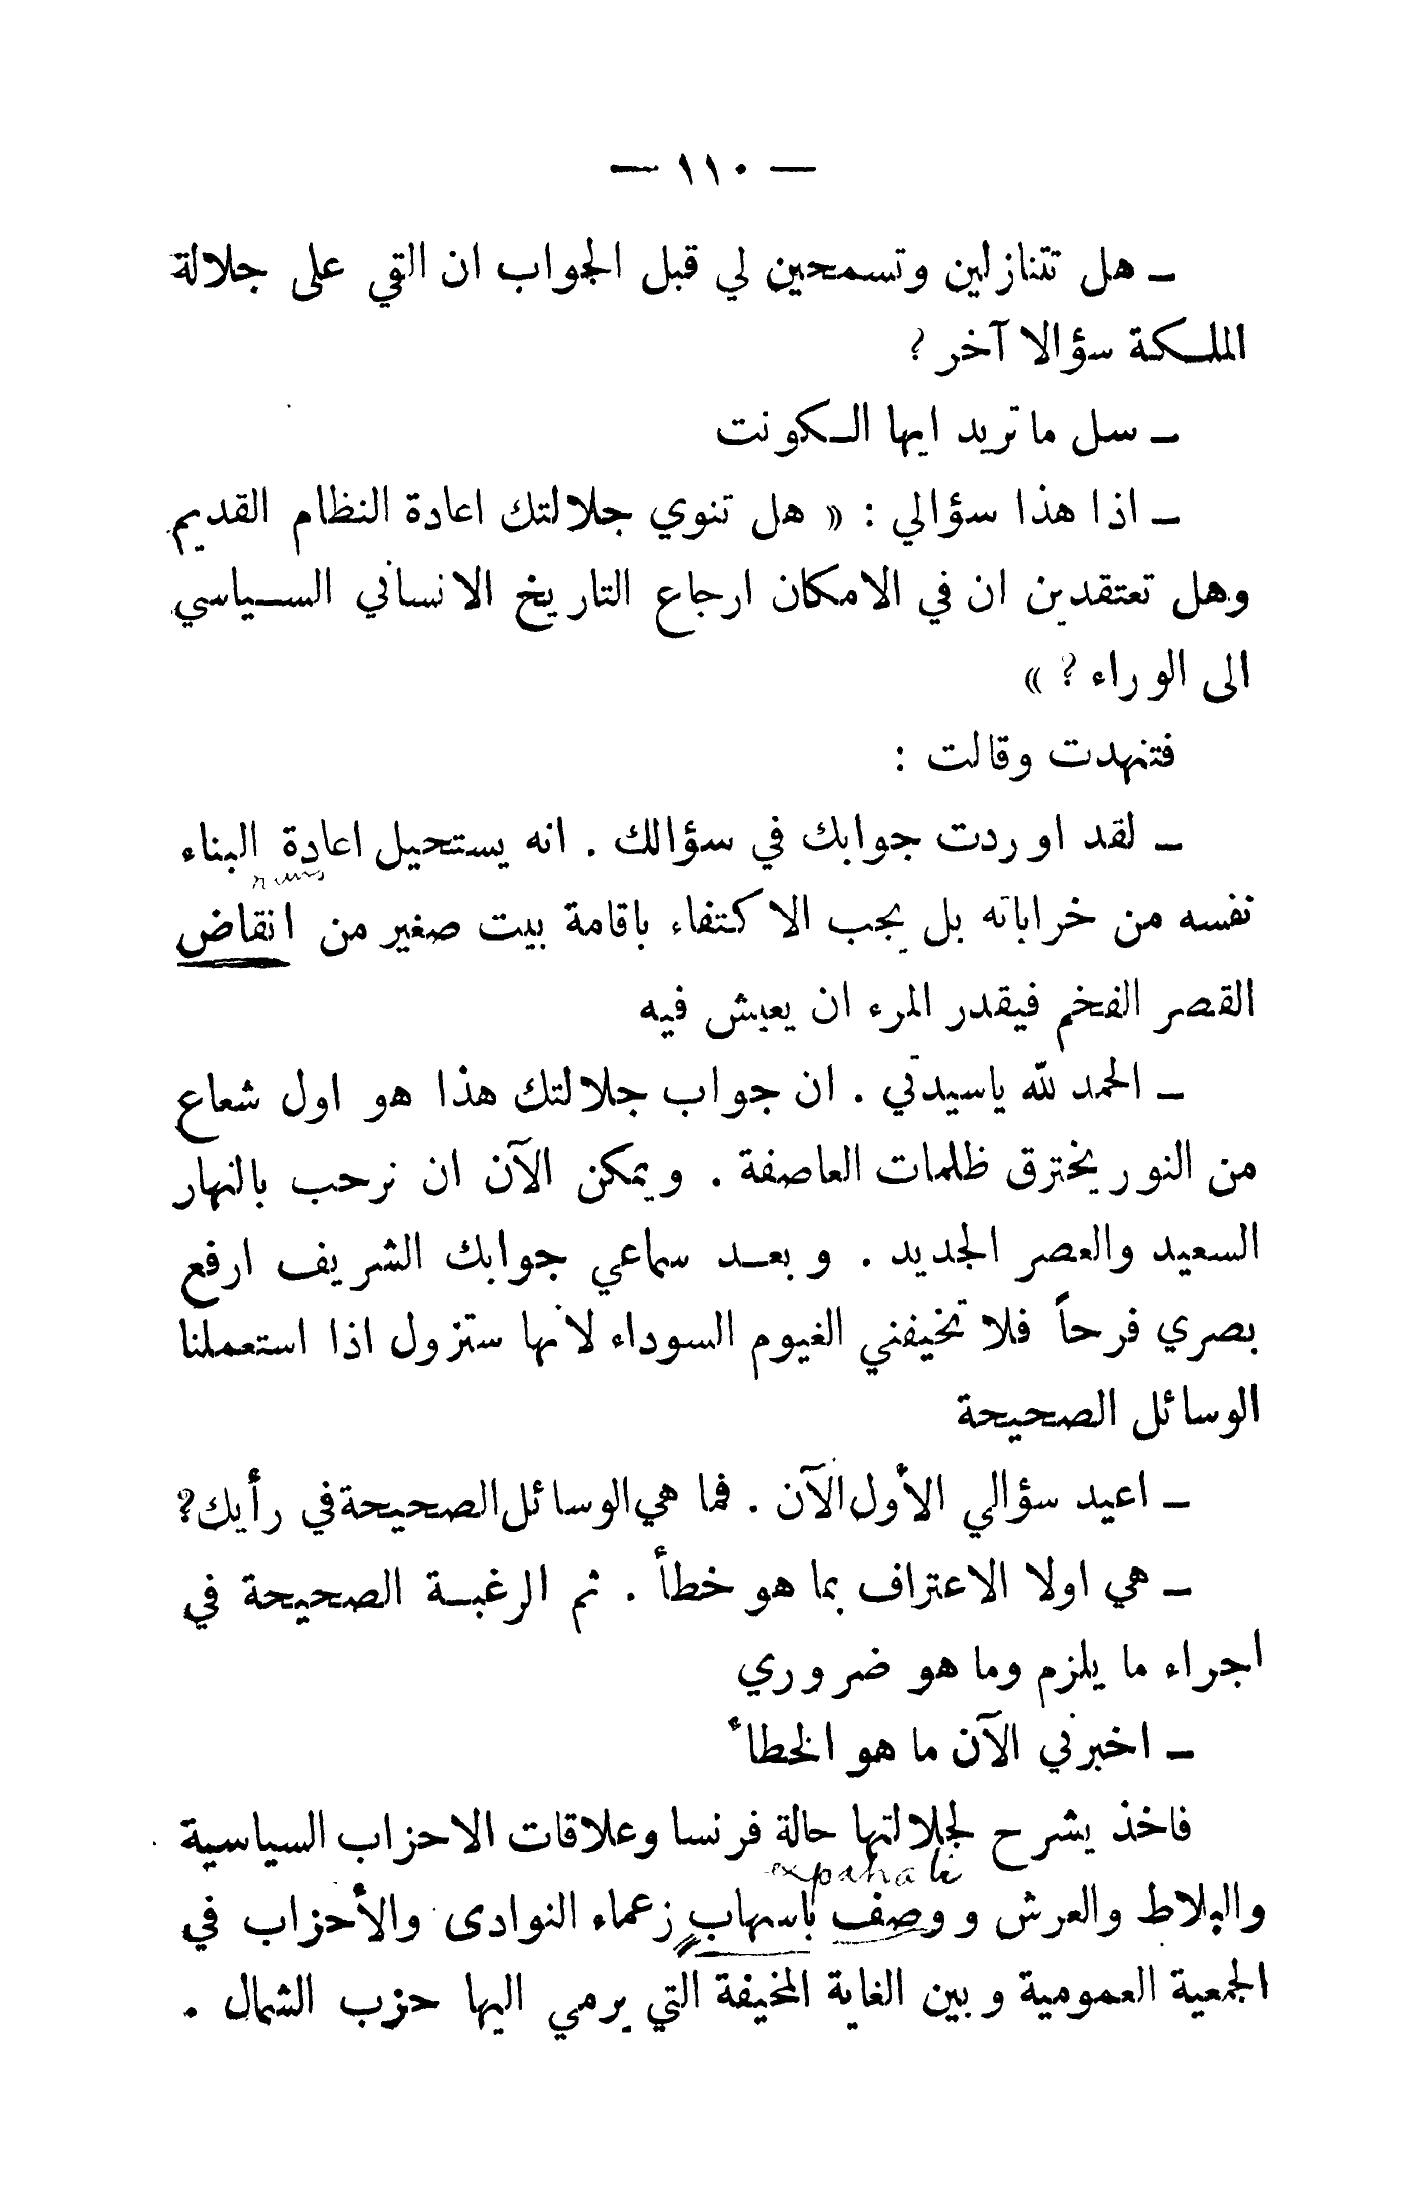 — ١١٠ —
— هل تتنازلين وتسمحين لي قبل الجواب ان القي على جلالة
الملكة سؤالا آخر ؟
— سل ما تريد ايها الكونت
— اذا هذا سؤالي : « هل تنوي جلالتك اعادة النظام القديم
وهل تعتقدين ان في الامكان ارجاع التاريخ الانساني السياسي
الى الوراء ؟ »
فتنهدت وقالت :
— لقد اوردت جوابك في سؤالك . انه يستحيل اعادة البناء
ruins
نفسه من خراباته بل يجب الاكتفاء باقامة بيت صغير من انقاض
القصر الفخم فيقدر المرء ان يعيش فيه
— الحمد لله ياسيدتي . ان جواب جلالتك هذا هو اول شعاع
من النور يخترق ظلمات العاصفة . ويمكن الآن ان نرحب بالنهار
السعيد والعصر الجديد . وبعد سماعي جوابك الشريف ارفع
بصري فرحاً فلا تخيفني الغيوم السوداء لانها ستزول اذا استعملنا
الوسائل الصحيحة
— اعيد سؤالي الأول الآن . فما هي الوسائل الصحيحة في رأيك؟
— هي اولا الاعتراف بما هو خطأ . ثم الرغبة الصحيحة في
اجراء ما يلزم وما هو ضروري
— اخبرني الآن ما هو الخطأ
فاخذ يشرح لجلالتها حالة فرنسا وعلاقات الاحزاب السياسية
والبلاط والعرش ووصف باسهاب زعماء النوادى والأحزاب في
الجمعية العمومية وبين الغاية المخيفة التي يرمي اليها حزب الشمال .